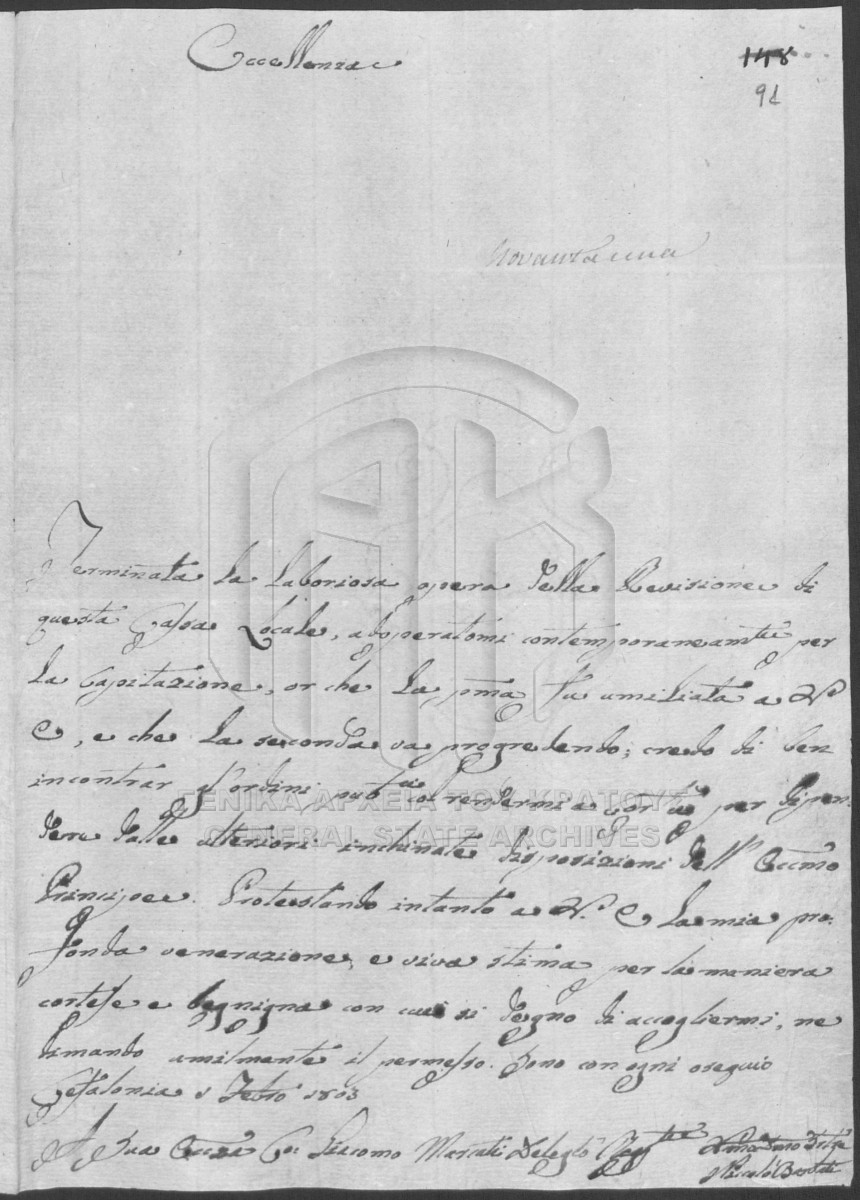 Eccellenza
148
91
Novantauna
Terminata la laboriosa opera della Revisione di
questa Cassa Locale, adoperatomi contemporaneamte per
la Capitazione, or che la pma fu umiliata a V.
E, e che la seconda va progredendo; credo di ben
incontrar gl'ordini pubci col rendermi a per dipen-
ΓΕΝΙΚΑ ΑΡΧΕΙΑ ΤΟΥ ΚΡΑΤΟΥΣ
GENERAL STATE ARCHIVES
dere dalle ulteriori inchinate disposizioni dell' Eccmo
Principe. Protestando intanto a V. E la mia pro-
fonda venerazione, e viva stima per la maniera
cortese e begnigna con cui si degnò di accogliermi, ne
dimando umilmente il permesso. Sono con ogni osequio
Cefalonia Febro 1803
A Sua Ecca Giacomo Delegto